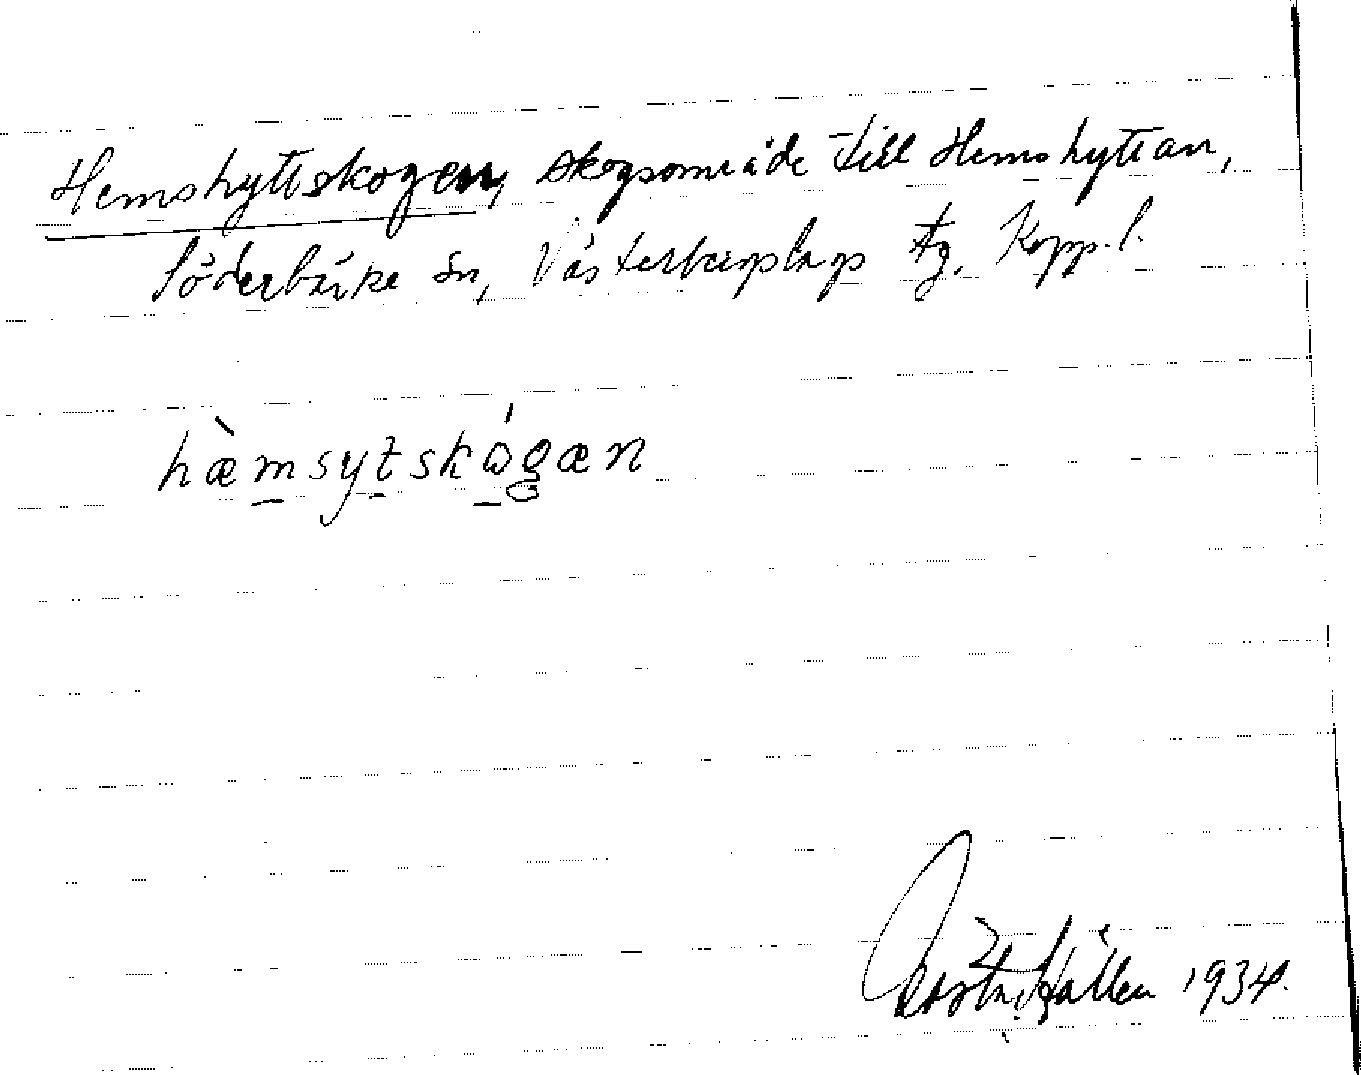 Hemshyttskogen, skogsområde till Hemshyttan,
Söderbärke sn, Västerbergslags tg. Kopp. l.
hæ̀msytskógæn
Källén 1934.